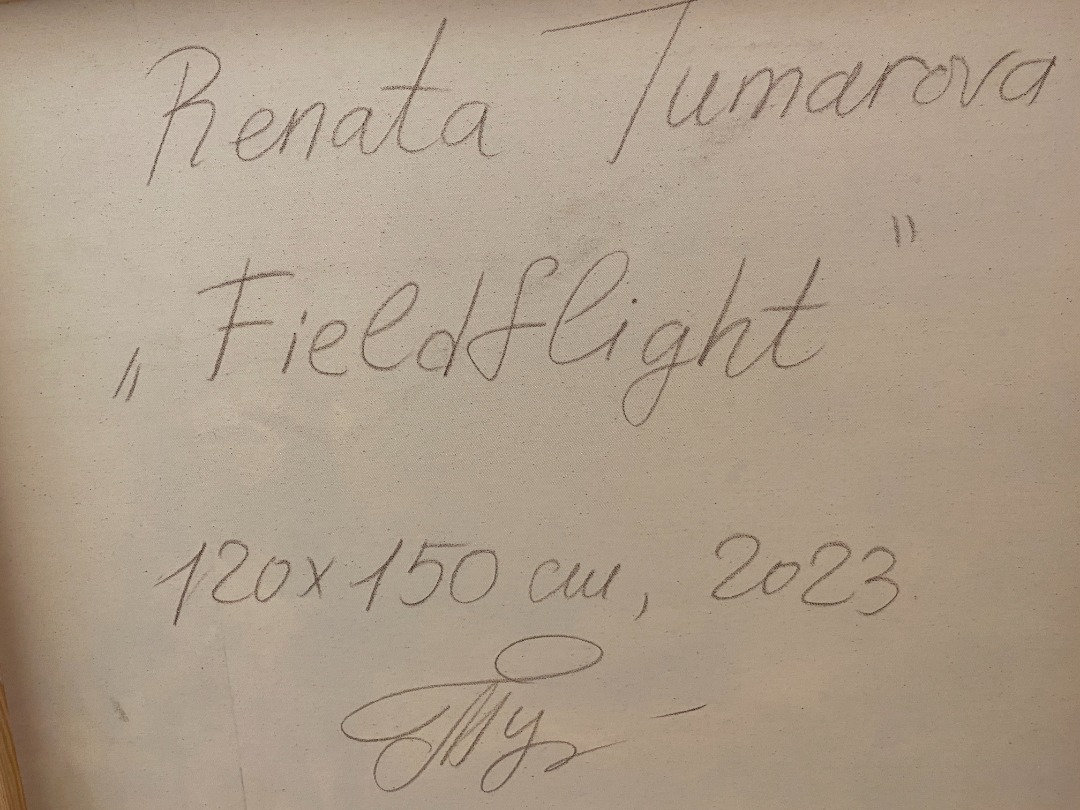 Renata Tumarova
„Fieldflight"
120x150 cm, 2023